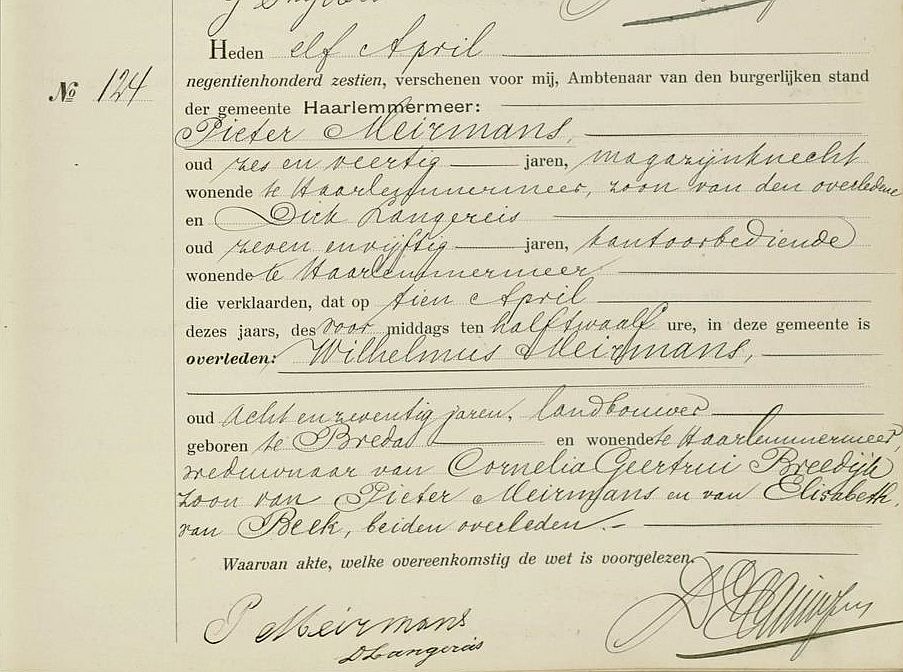 Heden elf April
Nº 124
negentienhonderd zestien, verschenen voor mij, Ambtenaar van den burgerlijken stand
der gemeente Haarlemmermeer:
Pieter Meirmans,
oud zes en veertig jaren, magazijnknecht
wonende te Haarlemmermeer, zoon van den overledene
en Dirk Langereis
oud zeven en vijftig jaren, kantoorbediende
wonende te Haarlemmermeer
die verklaarden, dat op tien April
dezes jaars, des voor middags ten half twaalf ure, in deze gemeente is
overleden: Wilhelmus Meirmans,
oud acht en zeventig jaren, landbouwer
geboren te Breda en wonende te Haarlemmermeer,
weduwnaar van Cornelia Geertrui Breedijk
zoon van Pieter Meirmans en van Elisabeth
van Beek, beiden overleden.-
Waarvan akte, welke overeenkomstig de wet is voorgelezen.
P Meirmans
D Langereis